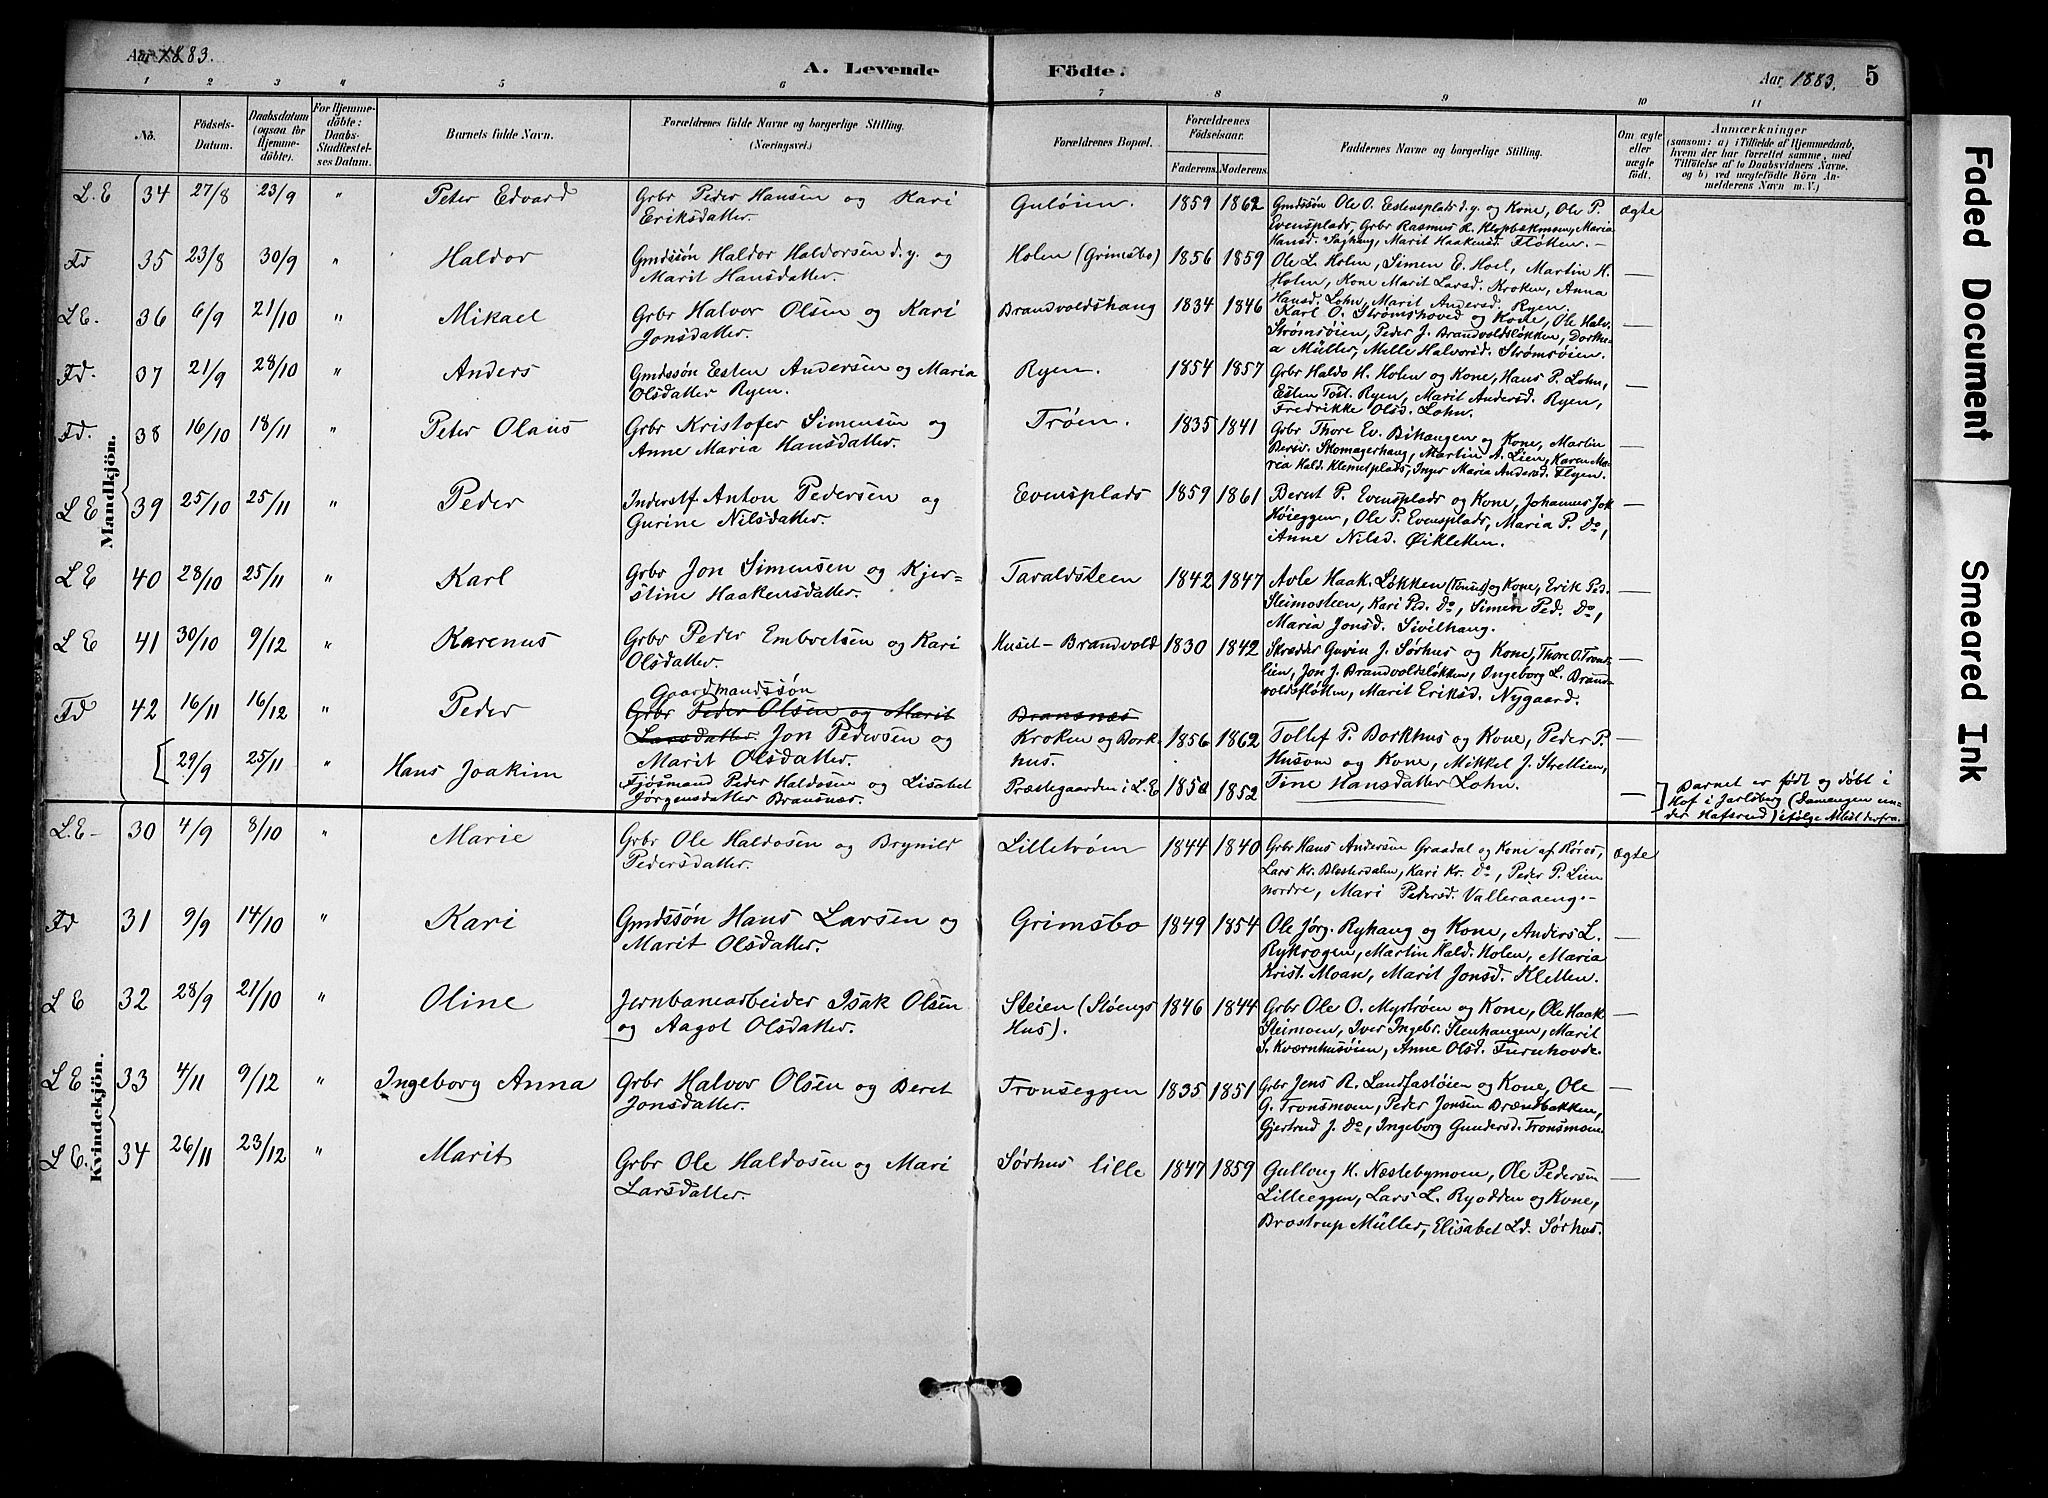 Aar 1883.
A. Levende Födte.
Aar 1883. 5
1 2 3 4 5 6 7 8 9 10 11
No.
Födsels-Datum.
Daabsdatum (ogsaa for Hjemme-döbte).
For Hjemme-döbte: Daabs-Stadfæstel-ses Datum.
Barnets fulde Navn.
Forældrenes fulde Navne og borgerlige Stilling.
(Næringsvei.)
Forældrenes Bopæl.
Forældrenes Födselsaar.
Faderens. Moderens.
Faddernes Navne og borgerlige Stilling.
Om ægte eller uægte födt.
Anmærkninger
(sansom: a) i Tilfælde af Hjemmedaab,
hvem der har forrettet samme, med
Tilföielse af to Daabsvidners Navne.
og b) ved uægtefödte Börn An-
melderens Navn m. V.)
Mandkjön.
L. E 34 27/8 23/9 " Peter Edvard Grbr Peder Hansen og Kari
Eriksdatter. Guløien. 1859 1862 Gmdssøn Ole O. Estensplads d.y. og Kone, Ole P. ægte
Evensplads, Grbr Rasmus R.
Hansd. Saghaug, Marit Haakensd. Fløtten. -
Fd 35 23/8 30/9 " Haldor Gmdssøn Haldor Haldorsen d. y. og
Marit Hansdatter. Holen (Grimsbo) 1856 1859 Ole L. Holen, Simen E. Hoel, Martin H. —
Holen, Kone Marit Larsd. Kroken, Anna
Hansd. Lohn, Marit Andersd. Ryen.
L E. 36 6/9 21/10 " Mikael Grbr Halvor Olsen og Kari
Jonsdatter. Brandvoldshaug 1834 1846 Karl O. Strømshoved og Kone, Ole Halv. —
Strømsøien, Peder J. Brandvoldsløkken, Dorthe-
a Müller, Mille Halvorsd. Strømsøien.
Fd. 37 21/9 28/10 " Anders Gmdssøn Esten Andersen og Maria
Olsdatter Ryen. Ryen. 1854 1857 Grbr Haldo H. Holen og Kone, Hans P. Lohn, —
Esten Tost. Ryen, Marit Andersd. Ryen,
Fredrikke Olsd. Lohn.
Fd. 38 16/10 18/11 " Peter Olaus Grbr Kristofer Simensen og
Anne Maria Hansdatter. Trøen. 1835 1841 Grbr Thore Ev. Bihaugen og Kone, Martin —
Skomagerhaug, Martin A. Lien, Karen Ma-
ria Hald. Klemetsplads, Inger Maria Andersd. Flyen.
L E 39 25/10 25/11 " Peder Inderstf Anton Pedersen og
Gurine Nilsdatter. Evensplads 1859 1861 Bernt P. Evensplads og Kone, Johannes Jok —
Høieggen, Ole P. Evensplads, Maria P. Do,
Anne Nilsd. Øikletten.
L E 40 28/10 25/11 " Karl Grbr Jon Simensen og Kjer-
stine Haakensdatter. Taraldsteen 1842 1847 Avle Haak. Løkken (Tønset) og Kone, Erik Ped. —
Steimosteen, Kari Ped. Do, Simen Ped. Do,
Maria Jonsd. Sivilhaug.
L E 41 30/10 9/12 " Karenus Grbr Peder Embretsen og Kari
Olsdatter. Huset - Brandvold 1830 1842 Skrædder Guvin J. Sørhus og Kone, Thore O. Trons- —
lien, Jon J. Brandvoldsløkken, Ingeborg L. Brand-
voldsfløtten, Marit Eriksd. Nygaard.
Fd 42 16/11 16/12 " Peder Gaardmandssøn
Grbr Peder Olsen og Marit Bransnæs
Larsdatter Jon Pedersen og
Marit Olsdatter. Kroken og Bork-
hus. 1856 1862 Tollef P. Borkhus og Kone, Peder P. —
Husom og Kone, Mikkel J. Strellien,
Tine Hansdatter Lohn.
[ 29/9 25/11 Hans Joakim Fjøsmand Peder Haldosen og Lisabet
Jørgensdatter Bransnæs. Præstegaarden i L. E 1850 1852 — Barnet er født og døbt i
Hof i Jarlsberg (Damengen un-
der Hafsrud) ifølge Attest derfra.
Kvindekjön.
L. E - 30 4/9 8/10 " Marie Grbr Ole Haldosen og Brynild
Pedersdatter. Lilletrøen 1844 1840 Grbr Hans Andersen Graadal og Kone af Røros, ægte
Lars Kr. Blesterdalen, Kari Kr. Do, Peder P. Lien
nordre, Mari Pedersd. Valleraaeng. -
Fd 31 9/9 14/10 " Kari Gmdssøn Hans Larsen og
Marit Olsdatter. Grimsbo 1849 1854 Ole Jørg. Ryhaug og Kone, Anders L. —
Rykrogen, Martin Hald. Holen, Maria
Krist. Moan, Marit Jonsd. Kletten.
L E 32 28/9 21/10 " Oline Jernbanearbeider Isak Olsen
og Aagot Olsdatter. Steien (Støengs
Hus). 1846 1844 Grbr Ole O. Mystrøen og Kone, Ole Haak —
Steimoen, Iver Ingebr. Stenhaugen, Marit
S. Kværnhusøien, Anne Olsd. Furuhovde.
L E 33 4/11 9/12 " Ingeborg Anna Grbr Halvor Olsen og Beret
Jonsdatter. Tronseggen 1835 1851 Grbr Jens R. Landfastøien og Kone, Ole —
G. Tronsmoen, Peder Jonsen Brændbakken,
Gjertrud J. Do, Ingeborg Gundersd. Tronsmoen.
L E. 34 26/11 23/12 " Marit Grbr Ole Haldosen og Mari
Larsdatter. Sørhus lille 1847 1859 Gullaug K. Næstebymoen, Ole Pedersen —
Lilleeggen, Lars L. Ryodden og Kone,
Brostrup Müller, Elisabet Ld. Sørhus.
Faded Document
Smeared Ink